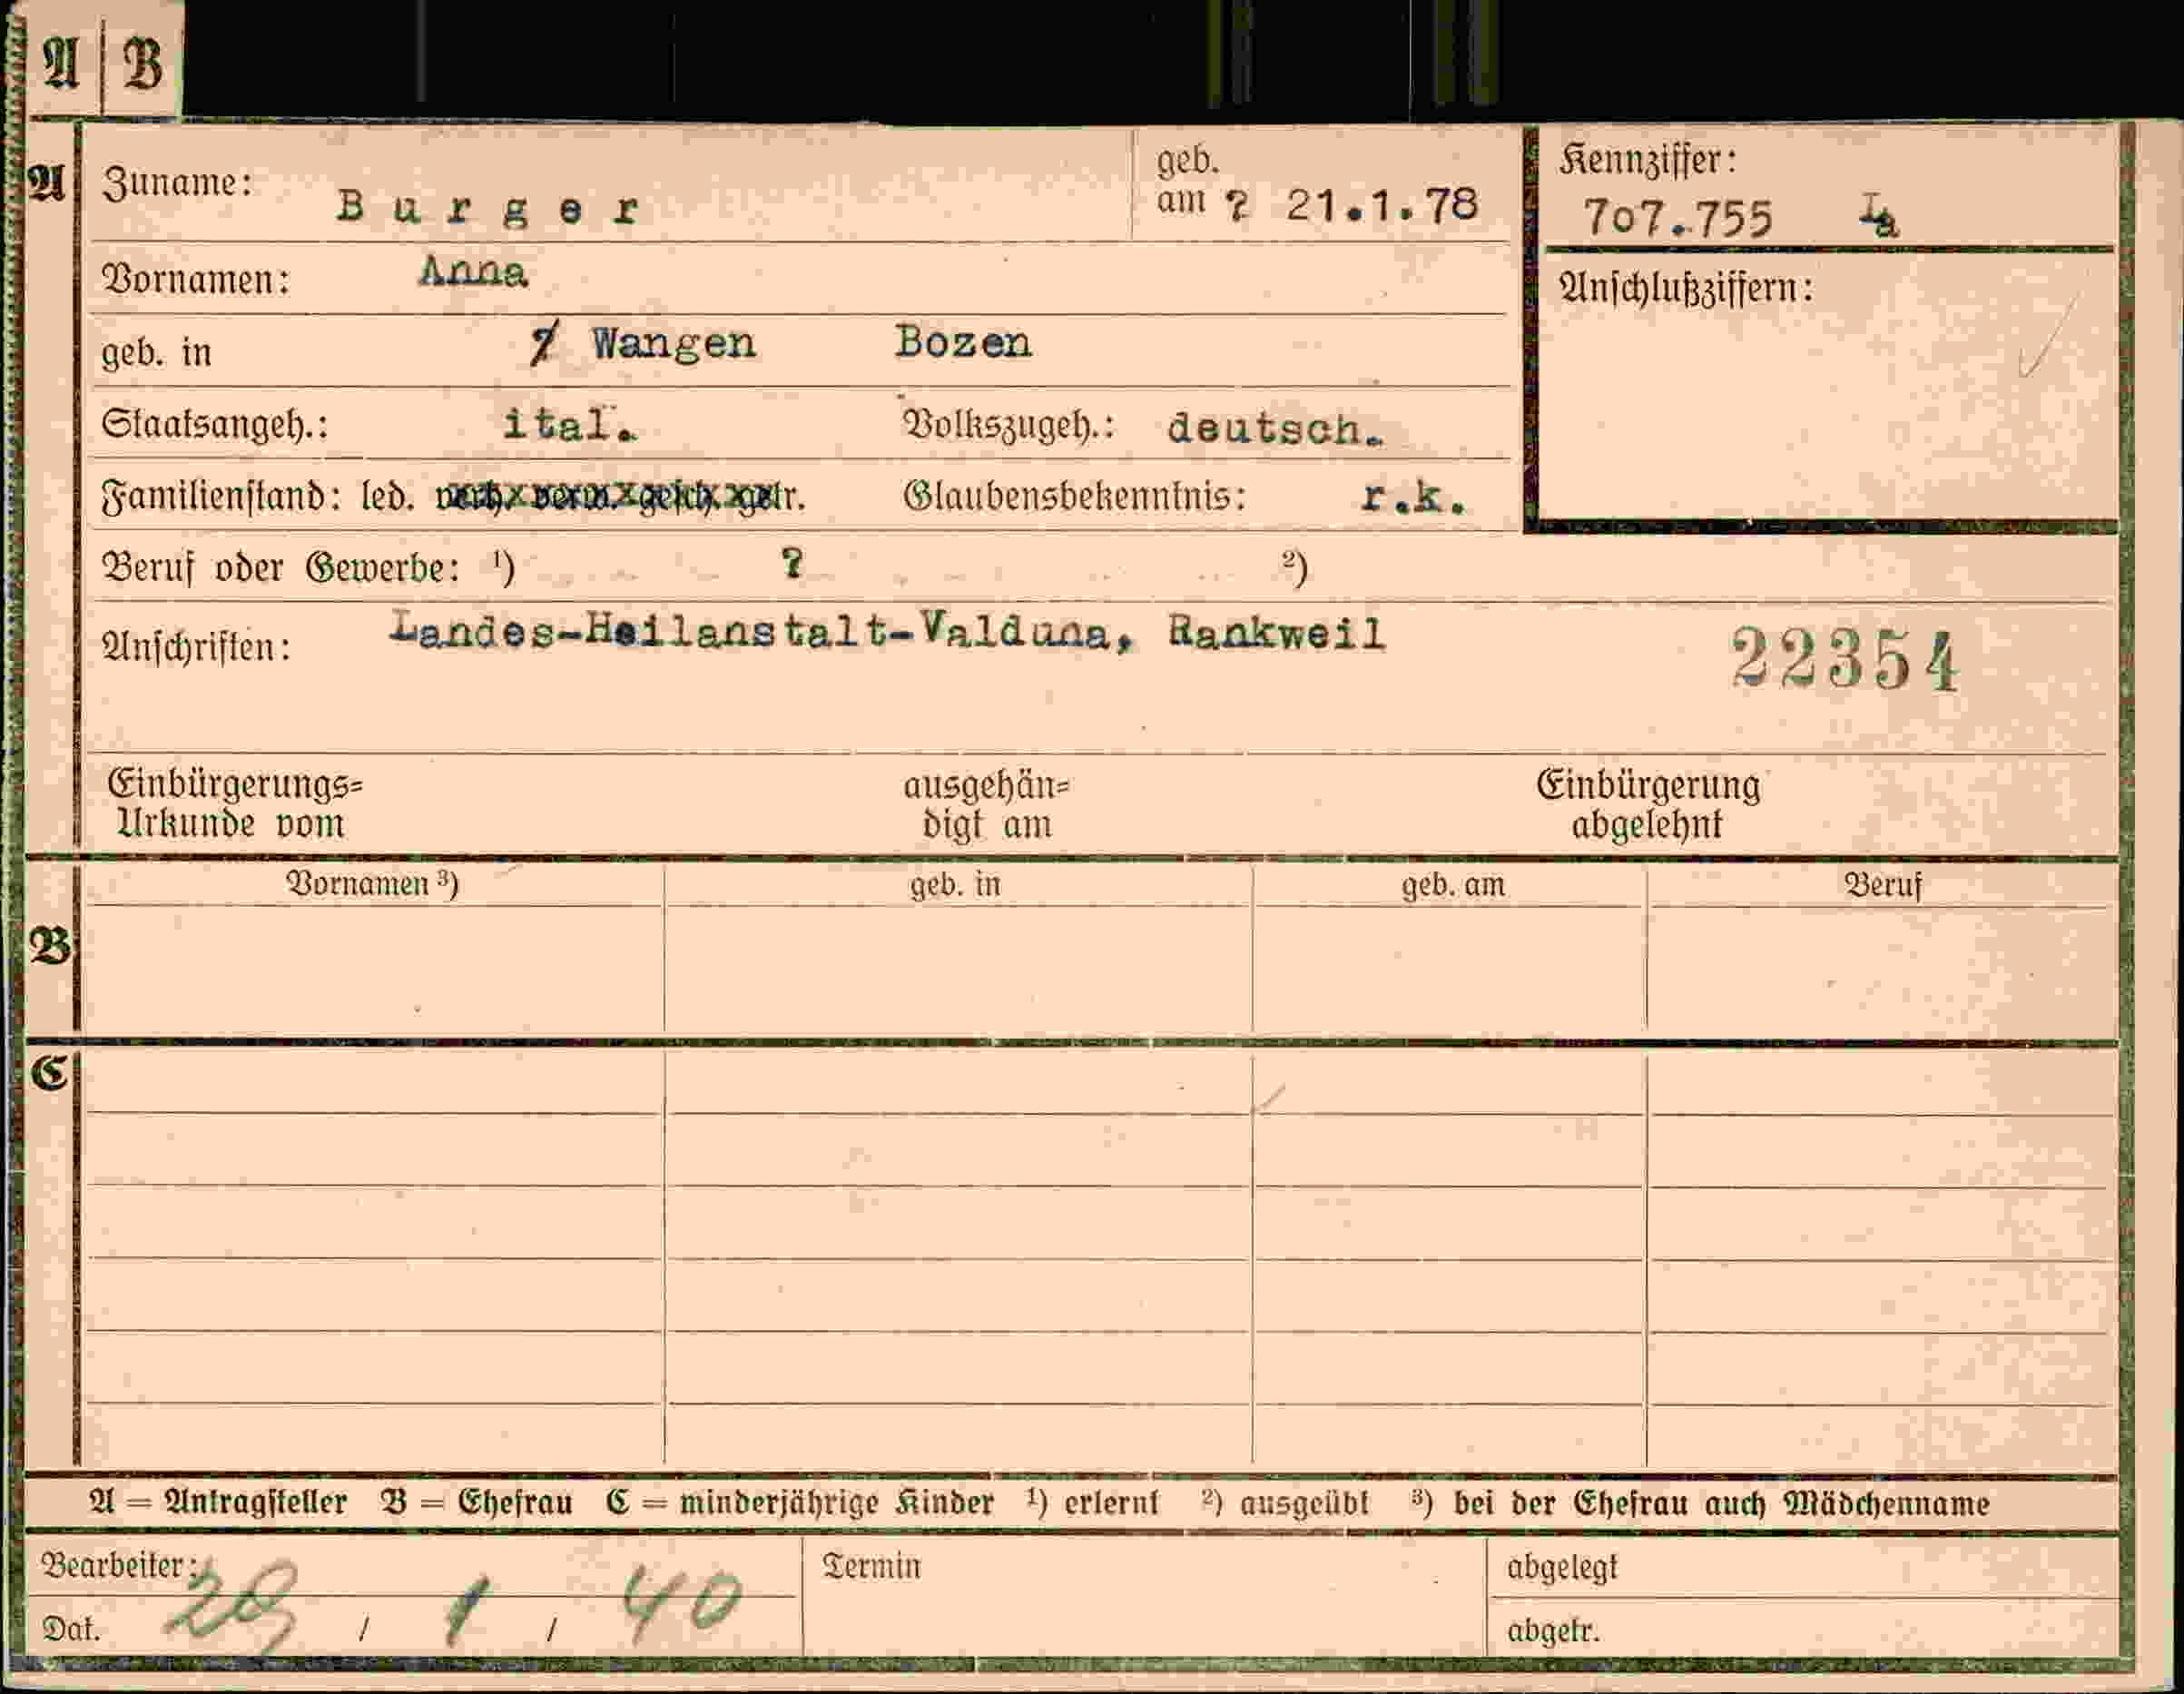 A | B
A
Zuname: Burger
geb. am ? 21.1.78
Kennziffer:
707.755
Vornamen: Anna
Anschlußziffern:
geb. in ? Wangen Bozen
Staatsangeh.: ital. Volkszugeh.: deutsch.
Familienstand: led. verh. verw. gesch. getr. Glaubensbekenntnis: r.k.
Beruf oder Gewerbe: ¹) ? ²)
Anschriften: Landes-Heilanstalt-Valduna, Rankweil 22354
Einbürgerungs=
Urkunde vom
ausgehän=
digt am
Einbürgerung
abgelehnt
B
Vornamen ³) geb. in geb. am Beruf
C
A = Antragsteller B = Ehefrau C = minderjährige Kinder ¹) erlernt ²) ausgeübt ³) bei der Ehefrau auch Mädchenname
Bearbeiter: Termin abgelegt
Dat. 29 / 1 / 40 abgetr.